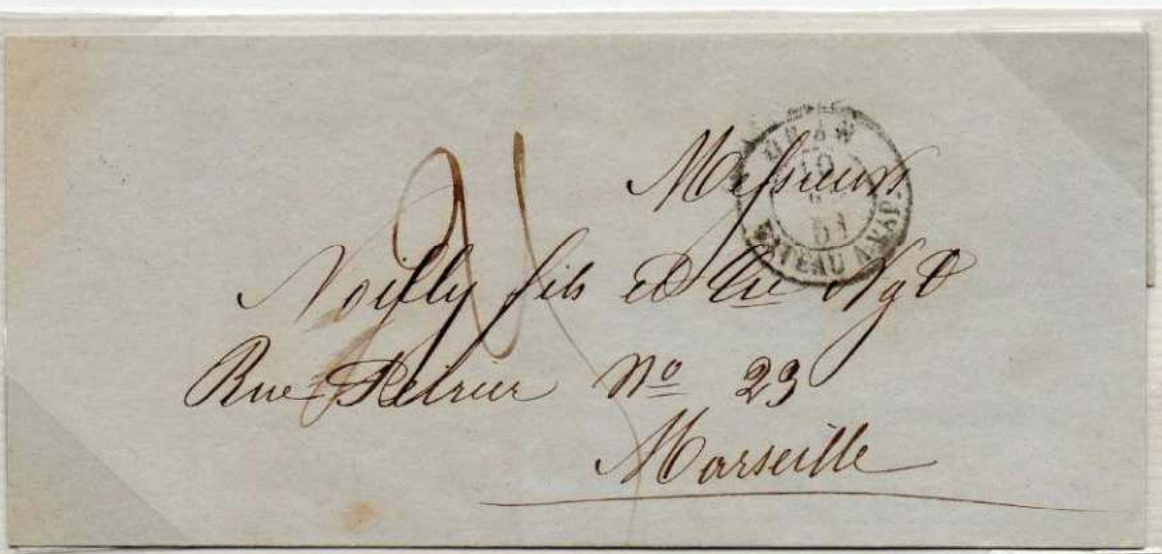 Messieurs
Noilly fils et Cie Ngt
Rue No 23
Marseille
ORAN
10
51
BATEAU A-VAP.